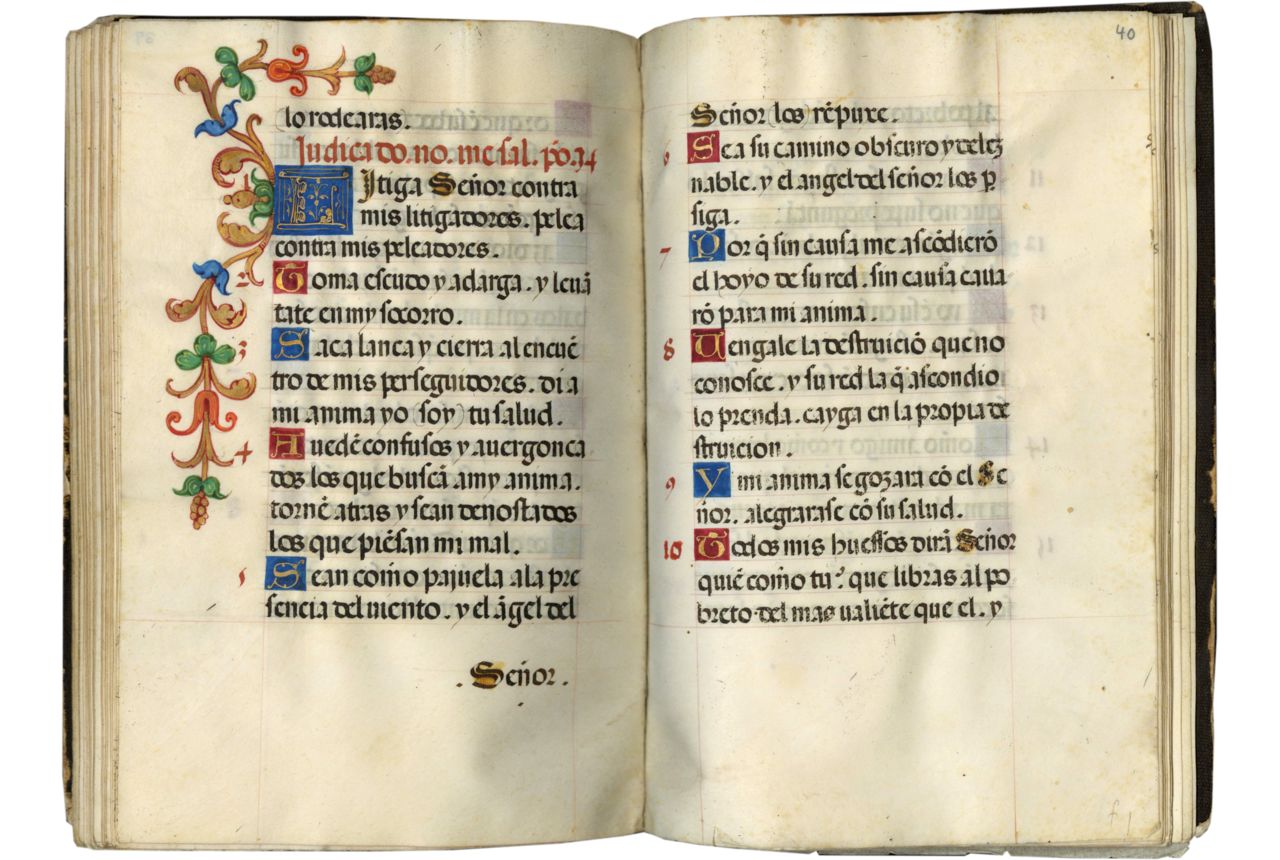 lo rodearas.
Judica do. no. me. sal. ps. 34
Litiga Señor contra
mis litigadores. pelea
contra mis peleadores.
2 Toma escudo y adarga. y leuã
tate en my socorro.
3 Saca lança y cierra al encuẽ
tro de mis perseguidores. di a
mi anima yo soy tu salud.
4 Auedẽ confusos y auergonça
dos los que buscã a my anima.
tornẽ atras y sean denostados
los que piẽsan mi mal.
5 Sean como pajuela a la pre
sencia del uiento. y el ãgel del
. Señor .
40
Señor los rẽpuxe.
6 Sea su camino obscuro y delez
nable. y el angel del señor los p
siga.
7 Por q̃ sin causa me ascõdierõ
el hoyo de su red. sin causa caua
rõ para mi anima.
8 Uengale la destruiciõ que no
conosce. y su red la q̃ ascondio
lo prenda. cayga en la propia de
struicion.
9 Y mi anima se gozara cõ el Se
ñor. alegrarase cõ su salud.
10 Todos mis huessos dirã Señor
quiẽ como tu? que libras al po
breto del mas ualiẽte que el. y